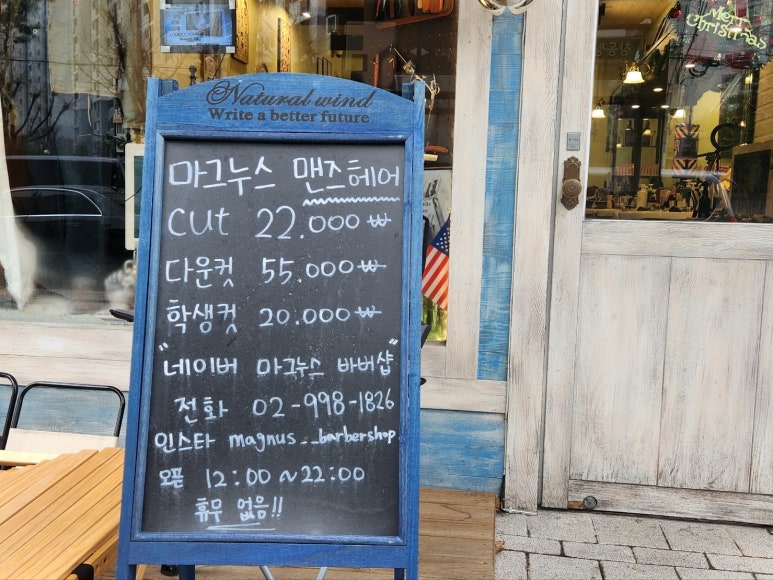 Natural wind
Write a better future
마그누스 맨즈헤어
cut 22.000₩
다운컷 55.000₩
학생컷 20.000₩
"네이버 마그누스 바버샵"
전화 02-998-1826
인스타 magnus__barbershop
오픈 12:00~22:00
휴무 없음!!
Merry
Christmas